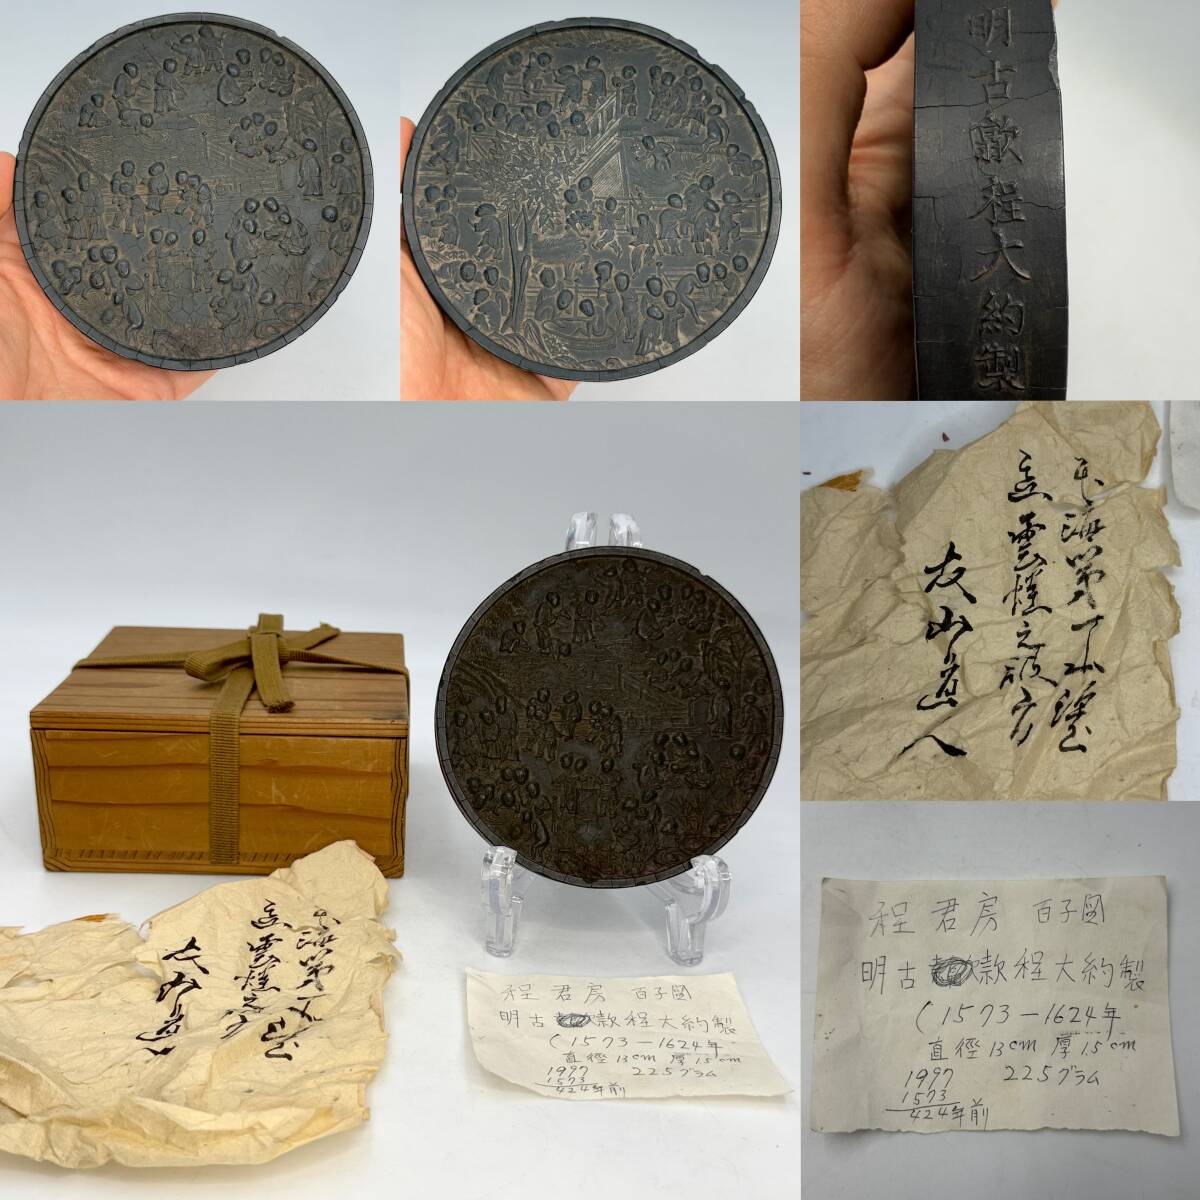 明古歙程大約製
友山道人
程君房 百子図
明古款程大約製
(1573-1624年
直径13cm 厚1.5cm
1997 225グラム
1573
424年前
友山道人
程君房 百子図
明古款程大約製
(1573-1624年
直径13cm 厚1.5cm
1997 225グラム
1573
424年前